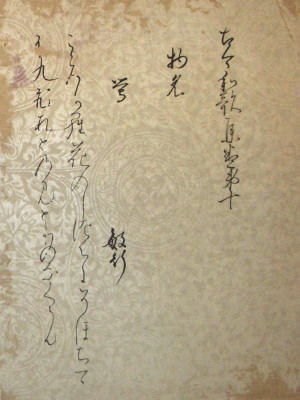 古今和歌集巻第十
物名
鶯　敏行
こゝろから花のしつくにそほちつゝ
うくひすとのみとりのなくらん